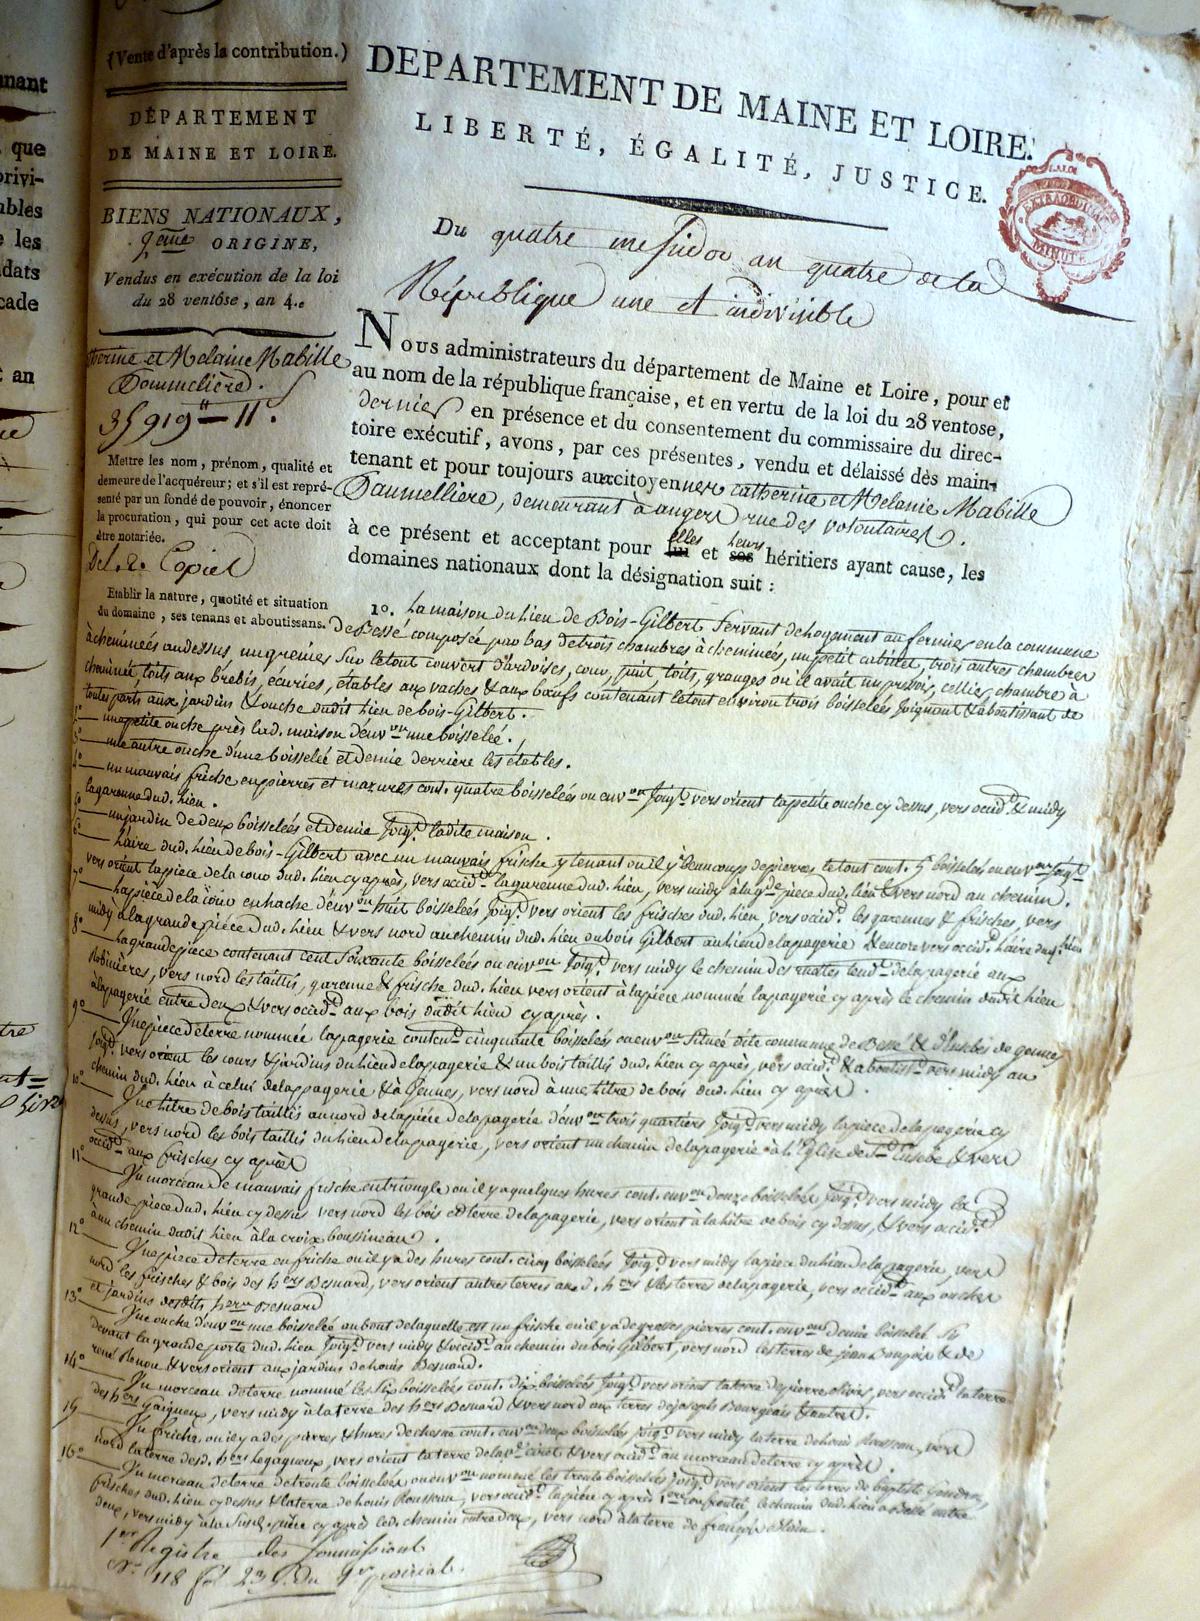 nant
que
privi-
ubles
e les
dats
cade
t an
(Vente d'après la contribution.)
DÉPARTEMENT
DE MAINE ET LOIRE.
BIENS NATIONAUX,
2ème ORIGINE,
Vendus en exécution de la loi
du 28 ventôse, an 4.e
therine et Melaine Mabille
Daumelière.
35919tt — 11s.
Mettre les nom, prénom, qualité et
demeure de l'acquéreur; et s'il est repré-
senté par un fondé de pouvoir, énoncer
la procuration, qui pour cet acte doit
être notariée.
Del. 2. Copies
Etablir la nature, quotité et situation
du domaine, ses tenans et aboutissans.
DEPARTEMENT DE MAINE ET LOIRE.
LIBERTÉ, ÉGALITÉ, JUSTICE.
LA LOI
EXTRAORDINAIRE
MINUTE
Du quatre messidor an quatre de la
République une et indivisible
Nous administrateurs du département de Maine et Loire, pour et
au nom de la république française, et en vertu de la loi du 28 ventose,
dernier en présence et du consentement du commissaire du direc-
toire exécutif, avons, par ces présentes, vendu et délaissé dès main-
tenant et pour toujours aux citoyennes catherine et Melanie Mabille
Daumelliere, demeurant à angers rue des volontaires.
à ce présent et acceptant pour lui elles et ses leurs héritiers ayant cause, les
domaines nationaux dont la désignation suit :
1o. La maison du lieu de Bois-Gilbert servant de logement au fermier en la commune
de Bessé composée par bas de trois chambres à cheminées, un petit cabinet, trois autres chambres
à cheminées au dessus, un grenier sur le tout couvert d'ardoises, cour, puit, toits, granges où il y avait un pressoir, cellier, chambre à
cheminée, toits aux brebis, écuries, étables aux vaches & aux bœufs contenant le tout environ trois boisselées joignant & aboutissant de
toutes parts aux jardins & ouche dudit lieu de bois-Gilbert.
2o une petite ouche près lad. maison d'env.on une boisselée.
3o une autre ouche d'une boisselée et demie derrière les étables.
4o un mauvais friche en pierres et mazures cont. quatre boisselées ou env.on joig.t vers orient la petite ouche cy dessus, vers occid.t & midy
la garenne dud. lieu.
5o un jardin de deux boisselées et demie joig.t ladite maison.
6o L'aire dud. lieu de bois-Gilbert avec un mauvais frische y tenant où il y a beaucoup de pierres le tout cont. 5 boisselées ou env.on joig.t
vers orient la pièce de la cour dud. lieu cy après, vers occid.t la garenne dud. lieu, vers midy à la g.de pièce dud. lieu & vers nord au chemin.
7o La pièce de la cour en hache d'env.on huit boisselées joig.t vers orient les frisches dud. lieu, vers occid.t les garennes & frisches, vers
midy à la grande pièce dud. lieu & vers nord au chemin dud. lieu du bois Gilbert au lieu de la pagerie & encore vers occid.t l'aire dud. lieu
8o La grande pièce contenant cent soixante boisselées ou env.on joig.t vers midy le chemin des mattes tend.t de la pagerie aux
Robinières, vers nord les taillis, garenne & frische dud. lieu vers orient à la pièce nommée la pagerie cy après le chemin dudit lieu
à la pagerie entre deux & vers occid.t aux bois dudit lieu cy après.
9o Une pièce de terre nommée la pagerie conten.t cinquante boisselées ou env.on située dite commune de Bessé & St. Eusèbe de gennes
joig.t vers orient les cours & jardins du lieu de la pagerie & un bois taillis dud. lieu cy après, vers occid.t & aboutiss.t vers midy au
chemin dud. lieu à celui de la pagerie & à Gennes, vers nord à une litre de bois dud. lieu cy après.
10o Une litre de bois taillis au nord de la pièce de la pagerie d'env.on trois quartiers joig.t vers midy la pièce de la pagerie cy
dessus, vers nord les bois taillis du lieu de la pagerie, vers orient un chemin de la pagerie à l'Eglise de St. Eusèbe & vers
occid.t aux frisches cy après
11o Un morceau de mauvais frische en triangle où il y a quelques hures cont. env.on douze boisselées joig.t vers midy la
grande pièce dud. lieu cy dessus vers nord les bois et terre de la pagerie, vers orient à la litre de bois cy dessus, & vers occid.t
à un chemin dudit lieu à la croix boussineau.
12o Une pièce de terre en friche où il y a des hures cont. cinq boisselées joig.t vers midy la pièce du lieu de la pagerie, vers
nord les frisches & bois des h.ers Besnard, vers orient autres terres aud. h.ers & les terres de la pagerie, vers occid.t aux ouches
et jardins desdits h.ers Besnard
13o Une ouche d'env.on une boisselée au bout de laquelle est un frische où il y a de grosses pierres cont. env.on demie boisselée
devant la grande porte dud. lieu joig.t vers midy & occid.t au chemin du bois Gilbert, vers nord les terres de jean & de
rené Renou & vers orient aux jardins de louis Besnard.
14o Un morceau de terre nommé les six boisselées cont. dix boisselées joig.t vers orient la terre de pierre olivier, vers occid.t la terre
des h.ers gaigneux, vers midy à la terre des h.ers Besnard & vers nord aux terres de joseph Bourgeais & autres.
15 Un friche où il y a des pierres & hures de chesne cont. env.on deux boisselées joig.t vers midy la terre de louis Rousseau, vers
nord la terre desd. h.ers legagneux, vers orient la terre de la v.e & vers occid.t au morceau de terre cy après.
16o Un morceau de terre de trente boisselées ou env.on nommé les trente boisselées joig.t vers orient les terres de baptiste gendron,
frisches dud. lieu cy dessus & la terre de louis Rousseau, vers occid.t la pièce cy après le chemin dud. lieu à Bessé entre
deux, vers midy à la pièce cy après led. chemin entre deux, vers nord à la terre de françois
1er Registre des Soumissions
No. 118 fol. 235. du 9